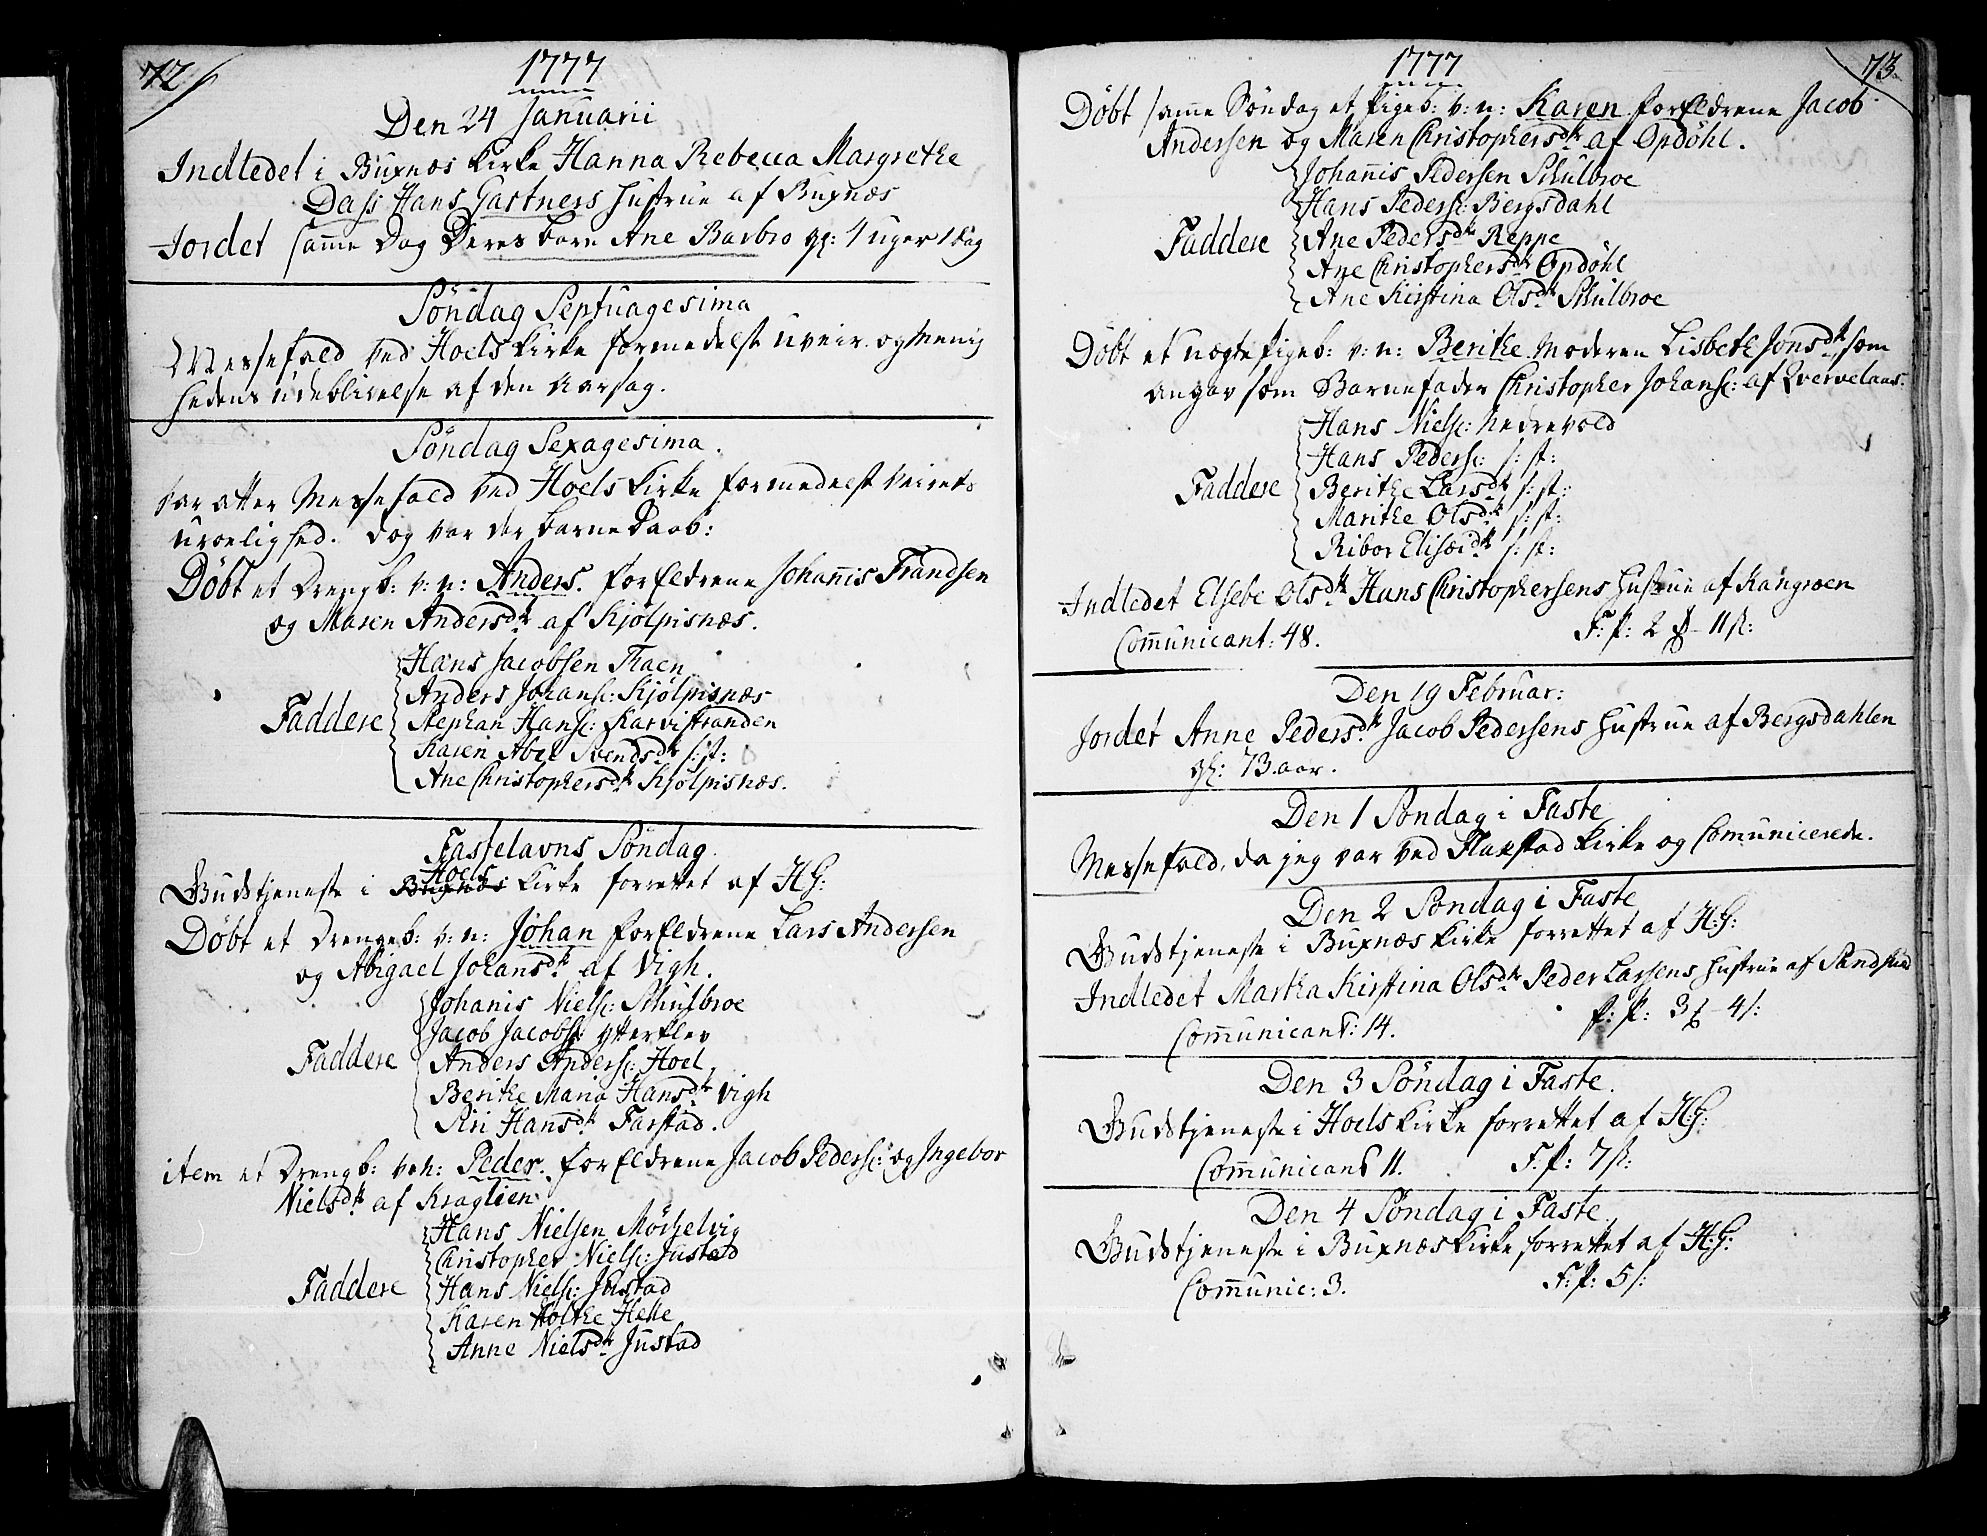 72
1777
Den 24 Januarii
Indledet i Buxnæs Kirke Hanna Rebecca Margrethe
Dass Hans Gartners Hustrue af Buxnæs
Jordet samme Dag Deres barn Ane Barbro gl: 4 uger 1 dag
Söndag Septuagesima
Messefald ved Hoels Kirke formedelst uveir og Menig
hedens udeblivelse af den Aarsag.
Söndag Sexagesima.
Var atter Messefald ved Hoels Kirke formedelst Veirets
uroelighed. dog var der barne Daab:
Döbt et Drengb: v: n: Anders. forældrene Johannis Frandsen
og Maren Andersdtr af Kjölpisnæs.
Hans Jacobsen Traen
Anders Johans: Kjölpisnæs
Faddere Stephan Hans: Karvistranden
Karen Abel Svendsdtr s: st:
Ane Christophersdtr Kjölpisnæs.
Fastelavns Söndag
Hoels
Gudstjeneste i Buxnæs Kirke forrettet af HG:
Döbt et Drengeb: v: n: Johan forældrene Lars Andersen
og Abigael Johansdtr af Vigh.
Johanis Niels: Schulbroe
Jacob Jacobs: Ytterklev
Faddere Anders Anders: Hoel
Berithe Maria Hansdtr Vigh
Siri Hansdtr Farstad.
item et Drengb: v: n: Peder. forældrene Jacob Peders: og Ingebor
Nielsdtr af Kraglien
Hans Nielsen Mörchelvig
Christopher Niels: Justad
Faddere Hans Niels: Justad
Karen Holthe Helle
Anne Nielsdtr Justad
73
1777
Döbt samme Söndag et Pigeb: v: n: Karen forældrene Jacob
Andersen og Maren Christophersdtr af Opdöhl.
Johannis Pedersen Schulbroe
Hans Peders: Bergsdahl
Faddere Ane Pedersdtr Reppe
Ane Christophersdtr Opdöhl
Ane Kirstina Olsdtr Schulbroe
Döbt et uægte Pigeb: v: n: Berithe Moderen Lisbeth Jonsdtr som
angav som Barnefader Christopher Johans: af Qvervelaas:
Hans Niels: Nedrevold
Hans Peders: s: st:
Faddere Berithe Larsdtr s: st:
Marithe Olsdtr s: st:
Ribor Elisæidtr s: st:
Indledet Elsebe Olsdtr Hans Christophersens Hustrue af Kangroen
Communicant: 48. F: P: 2 - 11 s:
Den 19 Februar:
Jordet Anne Pedersdtr Jacob Pedersens Hustrue af Bergsdahlen
gl: 73 aar.
Den 1 Söndag i Faste
Messefald, da jeg var ved Flaxstad Kirke og Comunicerede.
Den 2 Söndag i Faste
Gudstjeneste i Buxnæs Kirke forrettet af H: G:
Indledet Martha Kirstina Olsdtr Peder Larsens Hustrue af Sandsund
Communicant: 14. F: P: 3 - 4 s:
Den 3 Söndag i Faste.
Gudstjeneste i Hoels Kirke forrettet af HG:
Communicant 11. F: P: 7 s:
Den 4 Söndag i Faste
Gudstjeneste i Buxnæs Kirke forrettet af H: G:
Communic: 3. F: P: 5 s: